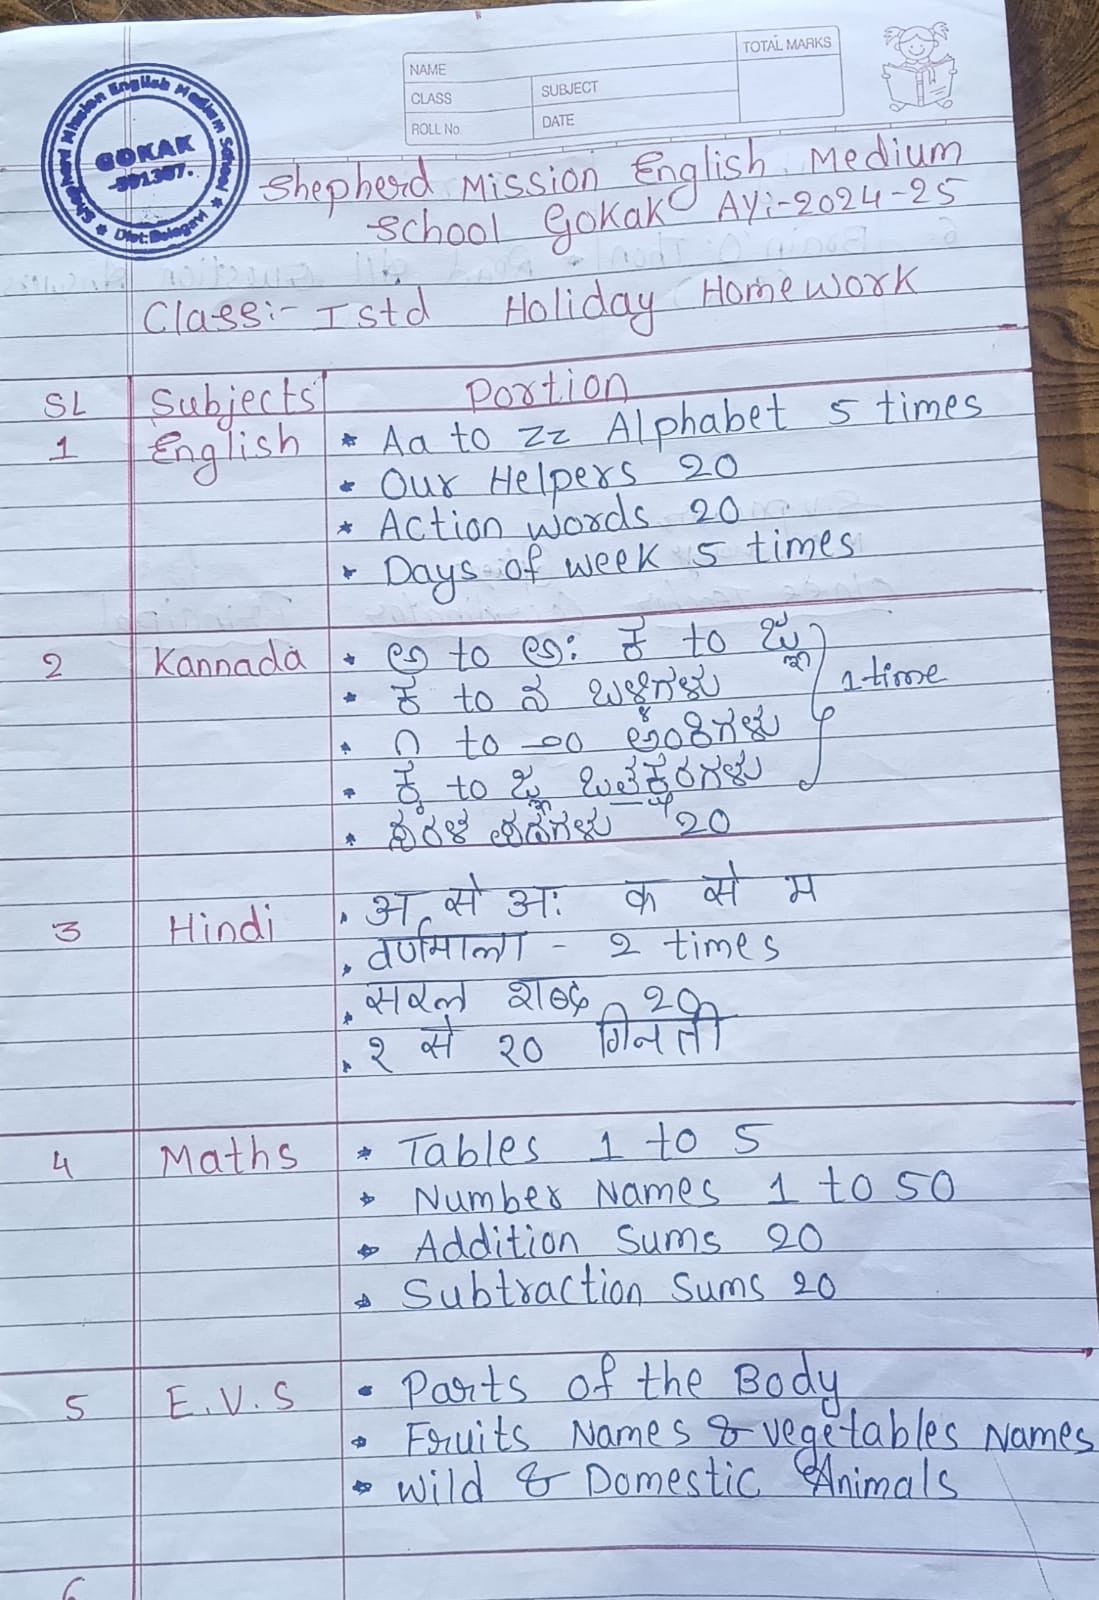 NAME
CLASS
SUBJECT
ROLL No.
DATE
TOTAL MARKS
Shepherd Mission English Medium School
GOKAK
-591307.
Dist:Belagavi
Shepherd Mission English Medium
School Gokak AY:-2024-25
Class:- I std Holiday Homework
SL Subjects Portion
1 English * Aa to Zz Alphabet 5 times
* Our Helpers 20
* Action words 20
* Days of week 5 times
2 Kannada * ಅ to ಅ: ಕ to ಜ್ಞ
* ಕ to ನ ಬಳ್ಳಿಗಳು 1 time
* ೧ to ೨೦ ಅಂಕಿಗಳು
* ಕ್ಕ to ಜ್ಞ
* ಸರಳ ಪದಗಳು 20
3 Hindi * अ से अः क से म
* वर्णमाला - 2 times
* सरल शब्द 20
* १ से २० गिनती
4 Maths * Tables 1 to 5
* Number Names 1 to 50
* Addition Sums 20
* Subtraction Sums 20
5 E.V.S * Parts of the Body
* Fruits Names & vegetables Names
* Wild & Domestic Animals